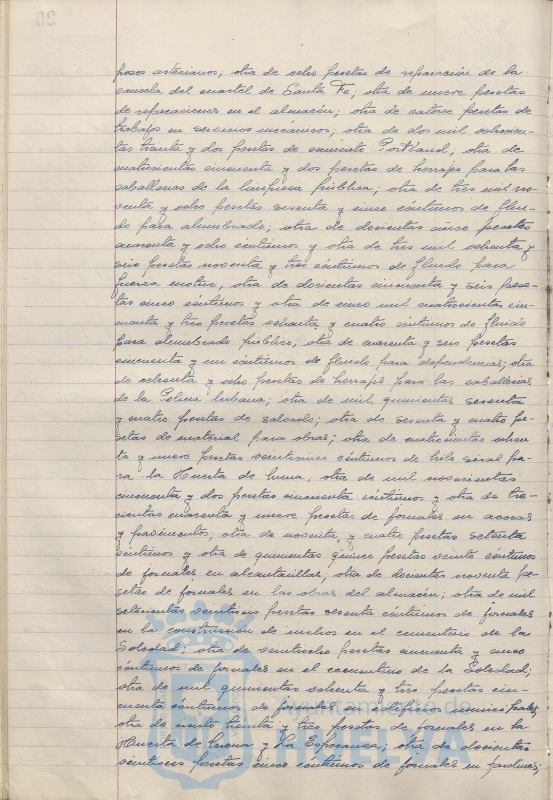 posos artesianos; otra de ocho pesetas de reparación de la
cancela del cuartel de Santa Fe; otra de nueve pesetas
de reparaciones en el almacén; otra de catorce pesetas de
trabajos en servicios mecánicos; otra de dos mil ochocien-
tas treinta y dos pesetas de cemento Portland; otra de
cuatrocientas cincuenta y dos pesetas de herraje para las
caballerias de la limpiesa pública; otra de tres mil no-
venta y ocho pesetas sesenta y cinco céntimos de flui-
do para alumbrado; otra de doscientas cinco pesetas
cuarenta y ocho céntimos y otra de tres mil ochenta y
seis pesetas noventa y tres céntimos de fluido para
fuerza motriz, otra de doscientas cincuenta y seis pese-
tas cinco céntimos y otra de cinco mil cuatrocientas cin-
cuenta y tres pesetas ochenta y cuatro céntimos de fluido
para alumbrado público; otra de cuarenta y seis pesetas
cincuenta y un céntimos de fluido para dependencias; otra
de ochenta y ocho pesetas de herrajes para las caballerias
de la Policia Urbana; otra de mil quinientas sesenta
y cuatro pesetas de calzado; otra de sesenta y cuatro pe-
setas de material para obras; otra de cuatrocientas ochen-
ta y nueve pesetas veinticinco céntimos de hilo sisal pa-
ra la Huerta de; otra de mil novecientas
cincuenta y dos pesetas cincuenta céntimos y otra de tres-
cientas cuarenta y nueve pesetas de jornales en aceras
y pavimentos; otra de noventa y cuatro pesetas setenta
céntimos y otra de quinientas quince pesetas veinte céntimos
de jornales en alcantarillas; otra de doscientas noventa pe-
setas de jornales en las obras del almacén; otra de mil
setecientas veintiseis pesetas sesenta céntimos de jornales
en la construcción de nichos en el cementerio de la
Soledad; otra de veintiocho pesetas cincuenta y cinco
céntimos de jornales en el cementerio de la Soledad;
otra de mil quinientas ochenta y tres pesetas cin-
cuenta céntimos de jornales en edificios municipales;
otra de ciento treinta y tres pesetas de jornales en la
Huerta de y La Esperanza; otra de doscientas
veintiseis pesetas cinco céntimos de jornales en jardines;
Ayuntamiento de
HUELVA